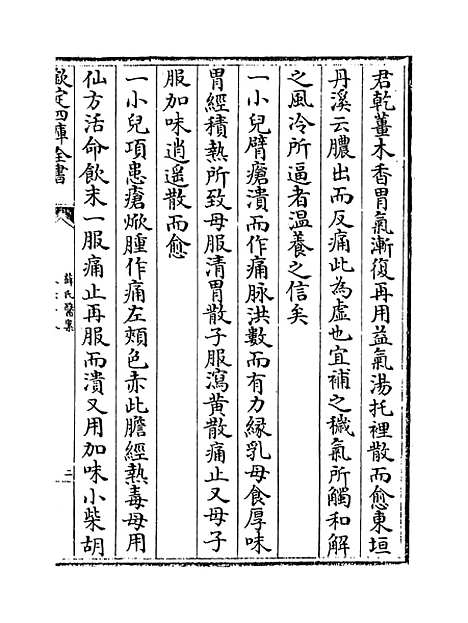 君乾薑木香胃氣漸復再用益氣湯托裡散而愈東垣
丹溪云膿出而反痛此為虛也宜補之穢氣所觸和解
之風冷所逼者温養之信矣
一小兒臂瘡潰而作痛脉洪數而有力縁乳母食厚味
胃經積熱所致母服清胃散子服瀉黄散痛止又母子
服加味逍遥散而愈
一小兒項患瘡焮腫作痛左頰色赤此膽經熱毒母用
仙方活命飲末一服痛止再服而潰又用加味小柴胡
欽定四庫全書
薛氏醫案
二